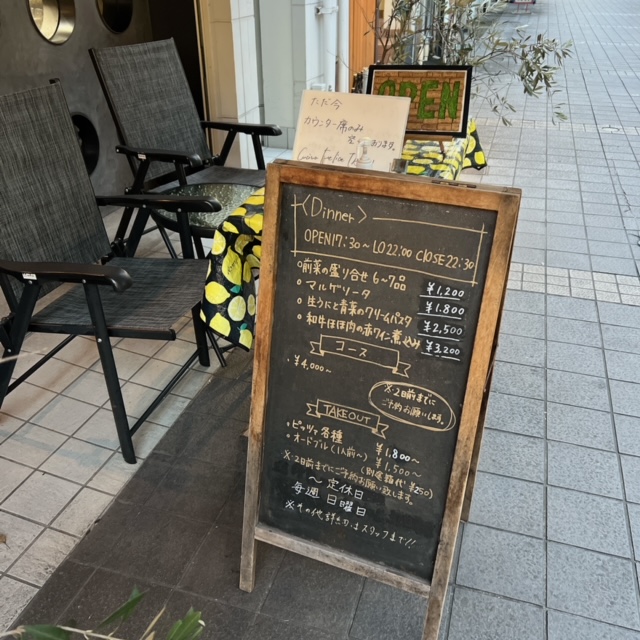 OPEN
ただ今
カウンター席のみ
空いております。
〈Dinner〉
OPEN17:30～LO22:00 CLOSE22:30
○前菜の盛り合せ6~7品 ¥1,200
○マルゲリータ ¥1,800
○生うにと青菜のクリームパスタ ¥2,500
○和牛ほほ肉の赤ワイン煮込み ¥3,200
コース
・¥4,000～
※2日前までに
ご予約お願いします。
TAKEOUT
・ピッツァ各種 ¥1,800～
・オードブル(1人前～) ¥1,500～
(別途箱代¥250)
※2日前までにご予約お願い致します。
～定休日
毎週 日曜日
※その他 はスタッフまで!!